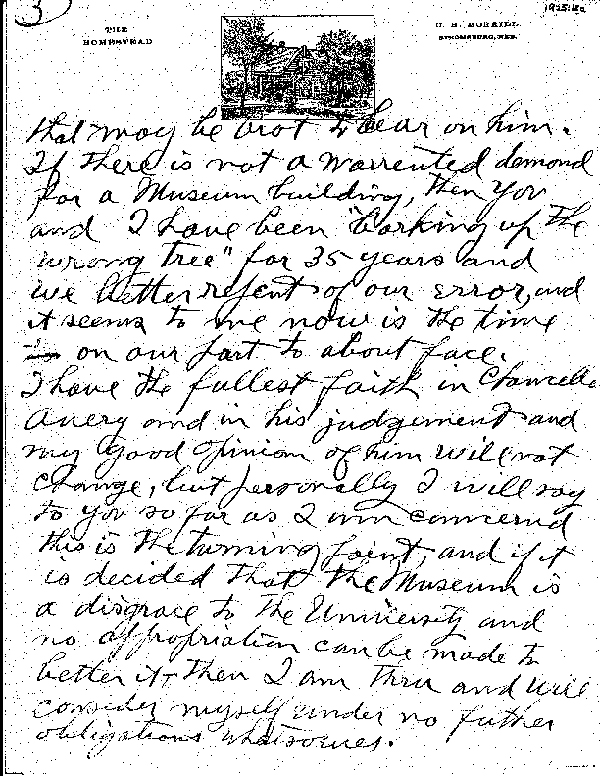 3
1925:8c
THE
HOMESTEAD
C. H. MORRILL
STROMSBURG, NEB.
that may be brot to bear on him.
If there is not a warrented demond
for a Museum building, then you
and I have been "barking up the
wrong tree" for 35 years and
we better repent of our error, and
it seems to me now is the time
on our part to about face.
I have the fullest faith in Chancello
Avery and in his judgement and
my good opinion of him will not
change, but personally I will say
to you so far as I am concerned
this is the turning point, and if it
is decided that the Museum is
a disgrace to the University and
no appropriation can be made to
better it - then I am thru and will
consider myself under no futher
obligations whatsoever.